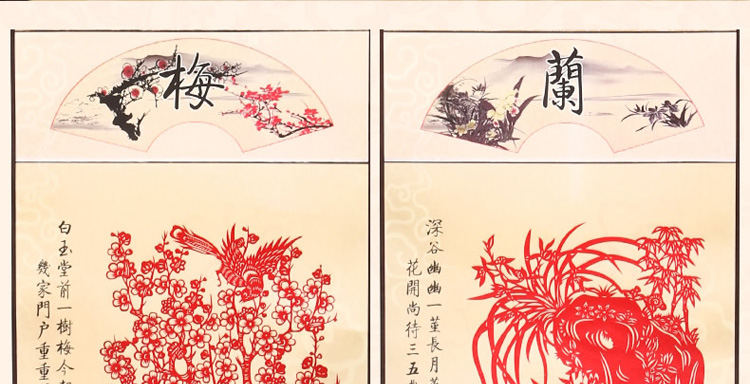 梅
白玉堂前一樹梅今
幾家門户重重
蘭
深谷幽幽一堇長月
花開尚待三五